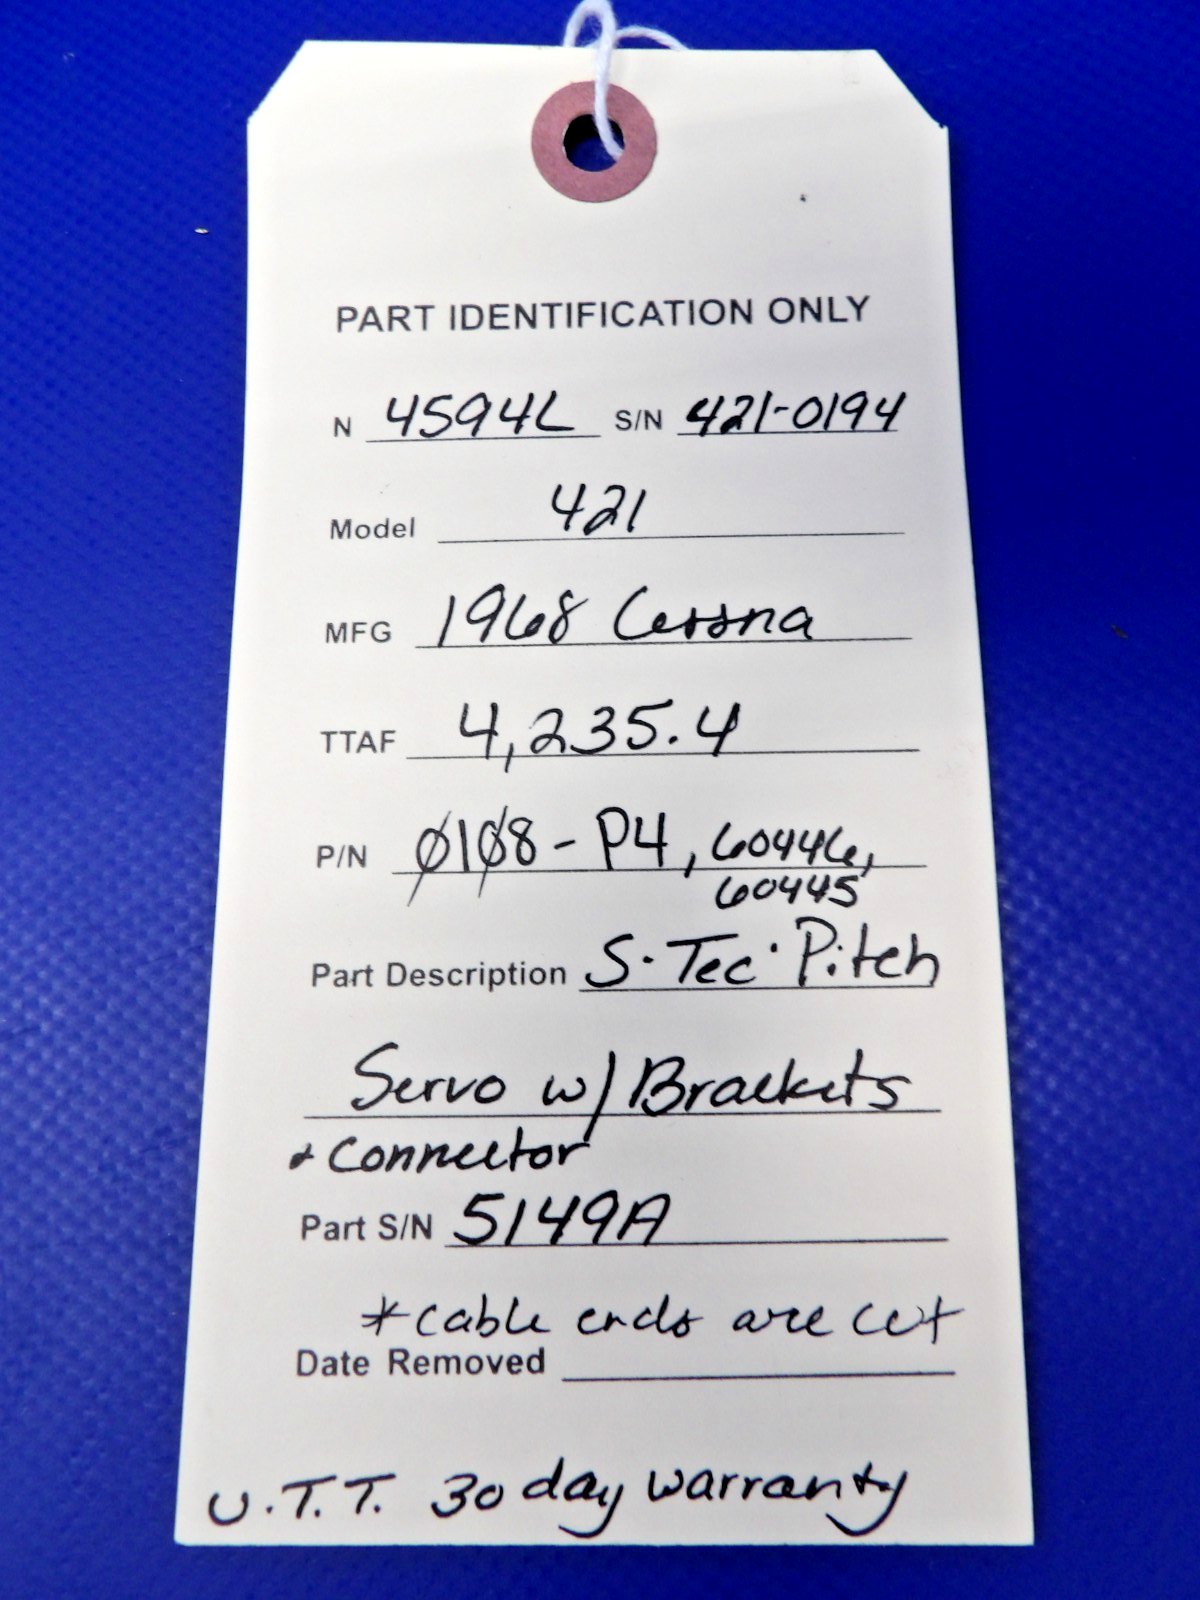 PART IDENTIFICATION ONLY
N 4594L S/N 421-0194
Model 421
MFG 1968 Cessna
TTAF 4,235.4
P/N Ø1Ø8-P4, 60446,
60445
Part Description S-Tec Pitch
Servo w/ Brackets
& Connector
Part S/N 5149A
*cable ends are cut
Date Removed
U.T.T. 30 day warranty